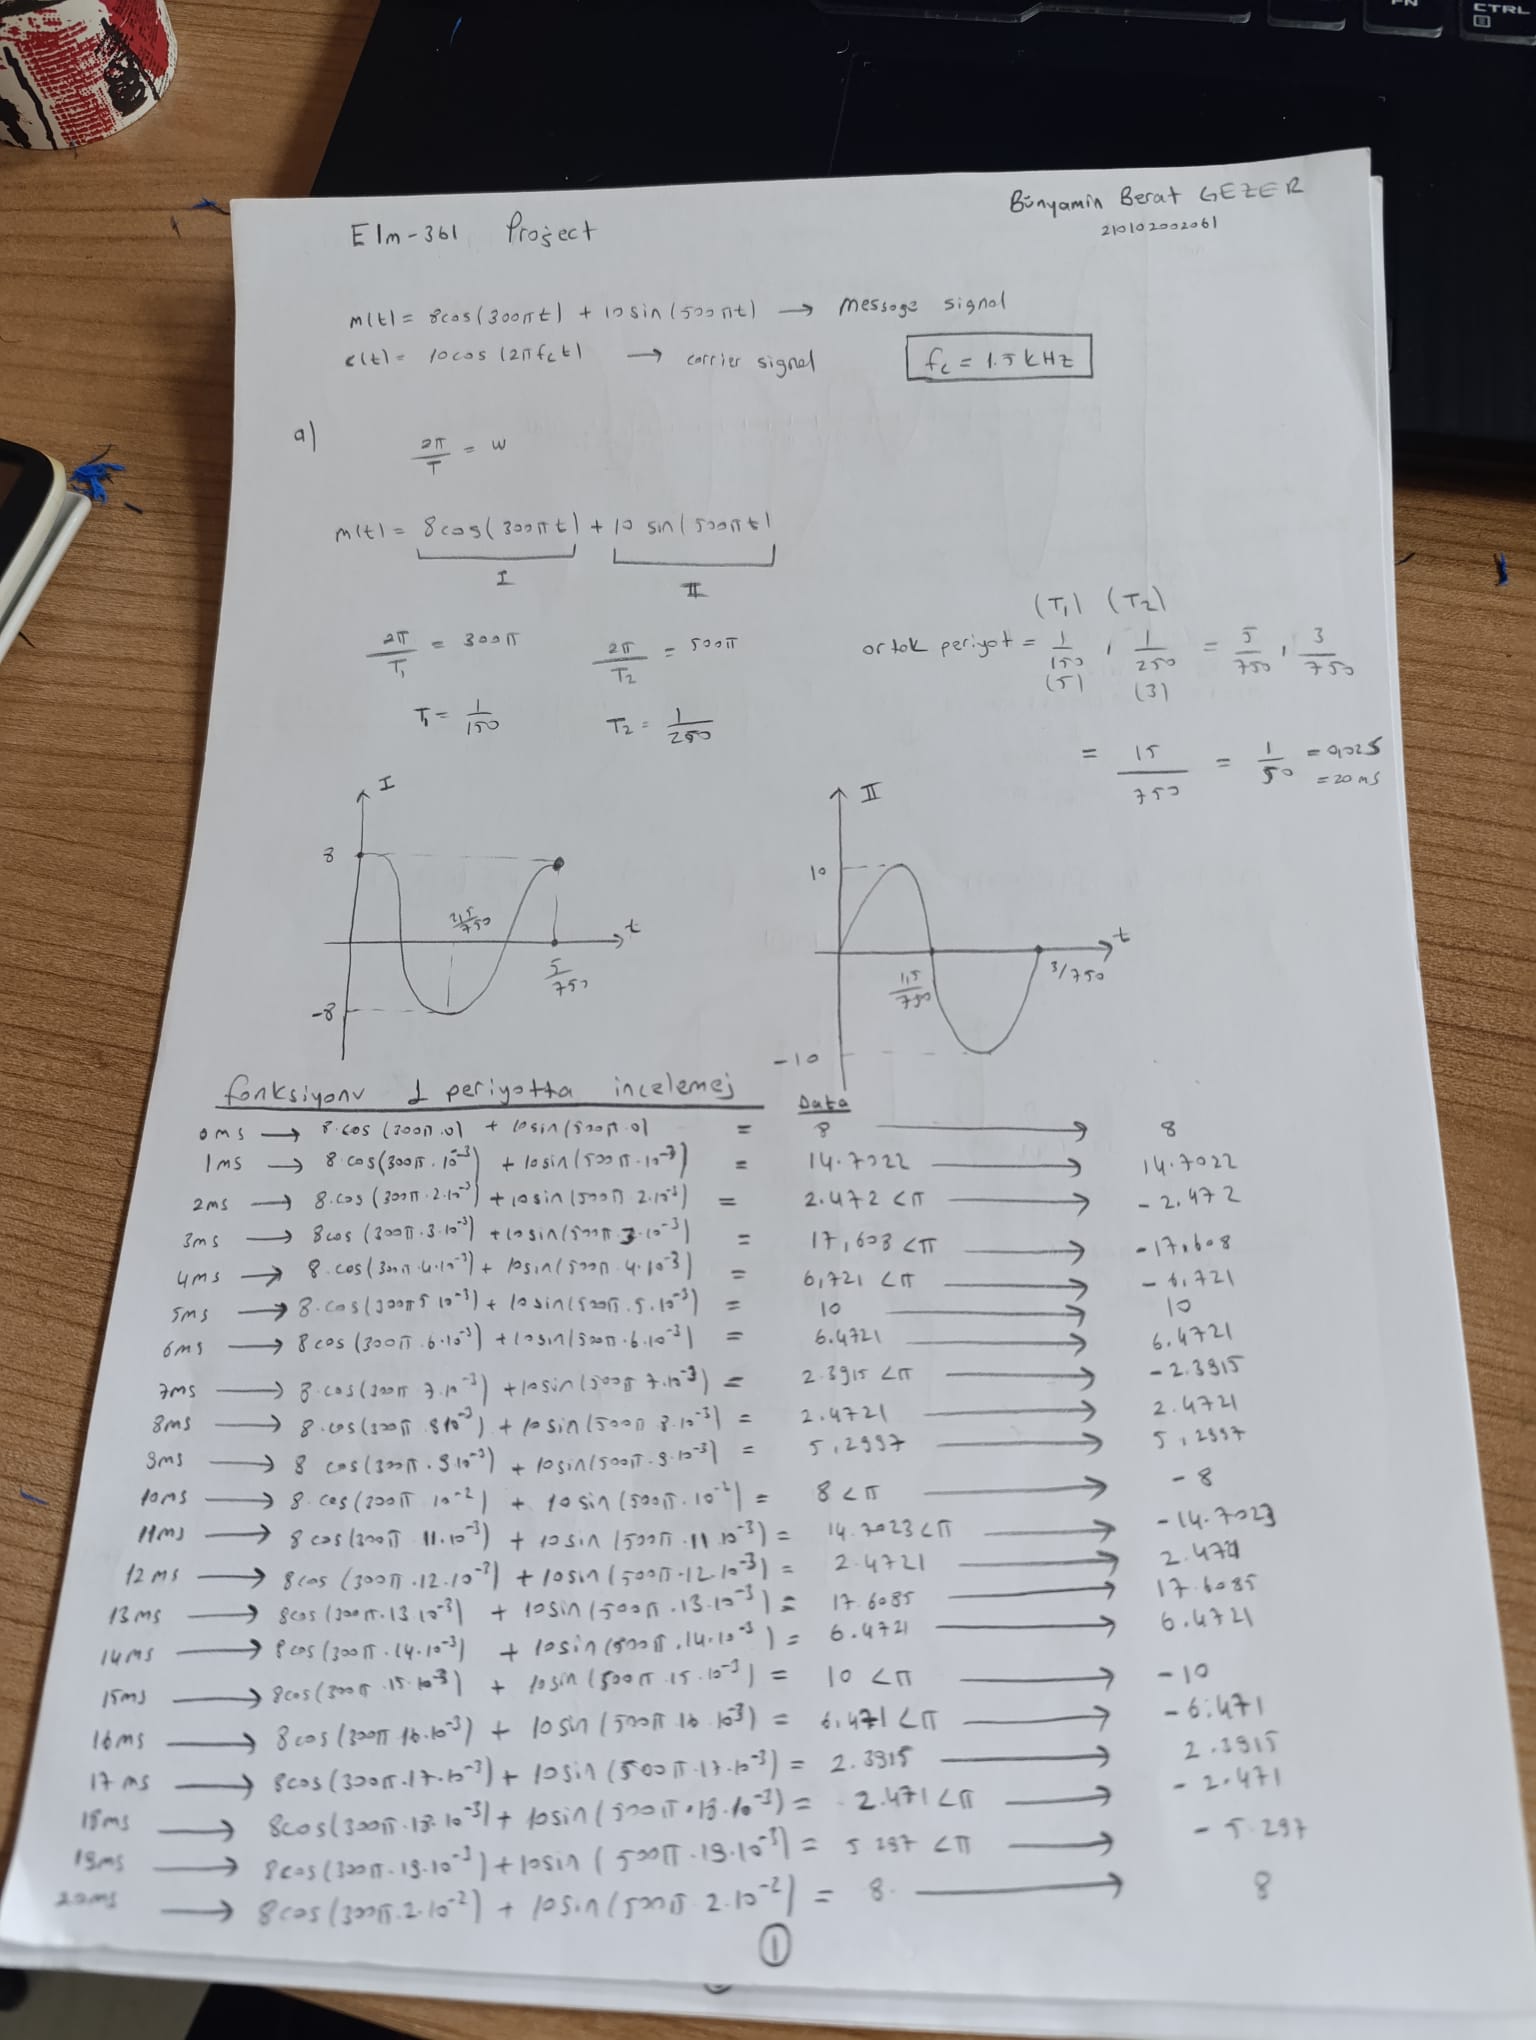 Bünyamin Berat GEZER
210102002061
Elm-361 Project
m(t) = 8cos(300πt) + 10sin(500πt) → Message signal
c(t) = 10cos(2πfct) → carrier signal fc = 1.5 kHz
a)
2π/T = w
m(t) = 8cos(300πt) + 10 sin(500πt)
I II
(T1) (T2)
2π/T1 = 300π 2π/T2 = 500π ortak periyot = 1/150 , 1/250 = 5/750 , 3/750
(5) (3)
T1 = 1/150 T2 = 1/250
= 15/750 = 1/50 = 0,02s
= 20ms
I II
8 10
2,5/750 t t
5/750 1,5/750 3/750
-8 -10
fonksiyonu 1 periyotta incelemej Data
0ms → 8.cos(300π.0) + 10sin(500π.0) = 8 → 8
1ms → 8.cos(300π.10^-3) + 10sin(500π.10^-3) = 14.7022 → 14.7022
2ms → 8.cos(300π.2.10^-3) + 10sin(500π 2.10^-3) = 2.472 <π → -2.472
3ms → 8cos(300π.3.10^-3) + 10sin(500π.3.10^-3) = 17,608 <π → -17,608
4ms → 8.cos(300π.4.10^-3) + 10sin(500π.4.10^-3) = 6,721 <π → -6,721
5ms → 8.cos(300π5 10^-3) + 10sin(500π.5.10^-3) = 10 → 10
6ms → 8cos(300π.6.10^-3) + 10sin(500π.6.10^-3) = 6.4721 → 6.4721
7ms → 8.cos(300π 7.10^-3) + 10sin(500π 7.10^-3) = 2.3915 <π → -2.3915
8ms → 8.cos(300π 8 10^-3) + 10sin(500π 8.10^-3) = 2.4721 → 2.4721
9ms → 8 cos(300π.9 10^-3) + 10sin(500π.9.10^-3) = 5,2997 → 5,2997
10ms → 8.cos(300π 10^-2) + 10sin(500π.10^-2) = 8 <π → -8
11ms → 8cos(300π 11.10^-3) + 10sin(500π.11 10^-3) = 14.7023 <π → -14.7023
12ms → 8cos(300π.12.10^-3) + 10sin(500π.12.10^-3) = 2.4721 → 2.4721
13ms → 8cos(300π.13 10^-3) + 10sin(500π.13.10^-3) = 17.6085 → 17.6085
14ms → 8cos(300π.14.10^-3) + 10sin(500π.14.10^-3) = 6.4721 → 6.4721
15ms → 8cos(300π.15.10^-3) + 10sin(500π.15.10^-3) = 10 <π → -10
16ms → 8cos(300π 16.10^-3) + 10sin(500π 16 10^-3) = 6,471 <π → -6.471
17ms → 8cos(300π.17.10^-3) + 10sin(500π.17.10^-3) = 2.3915 → 2.3915
18ms → 8cos(300π.18.10^-3) + 10sin(500π.18.10^-3) = 2.471 <π → -2.471
19ms → 8cos(300π.19.10^-3) + 10sin(500π.19.10^-3) = 5 297 <π → -5.297
20ms → 8cos(300π.2.10^-2) + 10sin(500π 2.10^-2) = 8. → 8
1
FN
CTRL